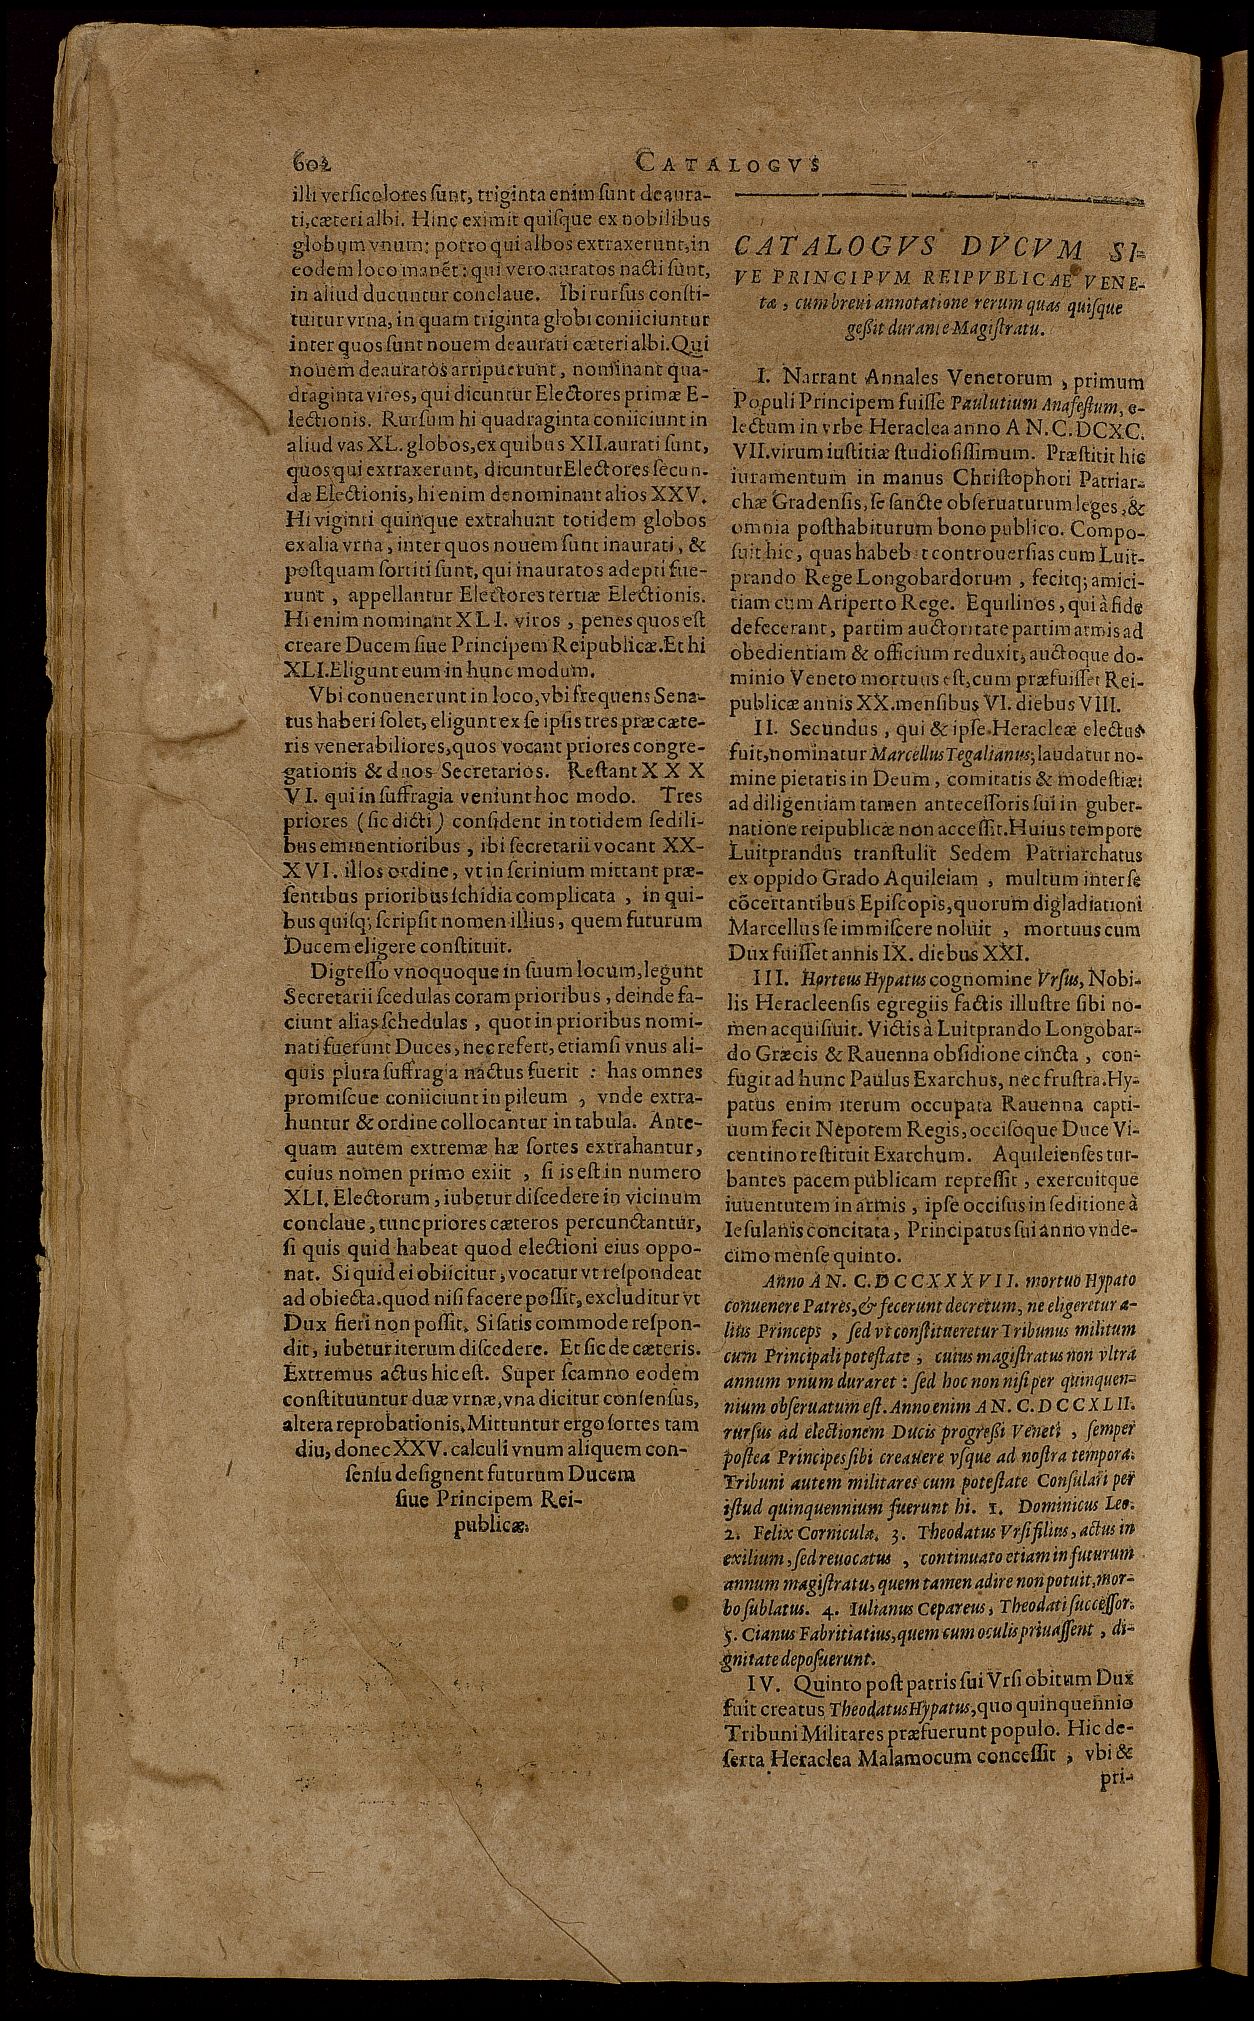 602
CATALOGVS
illi versicolores sunt, triginta enim sunt deaura-
ti, cæteri albi. Hinc eximit quisque ex nobilibus
globum vnum: porro qui albos extraxerunt, in
eodem loco manẽt: qui vero auratos nacti sunt,
in aliud ducuntur conclaue. Ibi rursus consti-
tuitur vrna, in quam triginta globi coniiciuntur
inter quos sunt nouem deaurati cæteri albi. Qui
nouem deauratos arripuerunt, nominant qua-
draginta viros, qui dicuntur Electores primæ E-
lectionis. Rursum hi quadraginta coniiciunt in
aliud vas XL. globos, ex quibus XII. aurati sunt,
quos qui extraxerunt, dicuntur Electores secun-
dæ Electionis, hi enim denominant alios XXV.
Hi viginti quinque extrahunt totidem globos
ex alia vrna, inter quos nouem sunt inaurati, &
postquam sortiti sunt, qui inauratos adepti fue-
runt, appellantur Electores tertiæ Electionis.
Hi enim nominant XLI. viros, penes quos est
creare Ducem siue Principem Reipublicæ. Et hi
XLI. Eligunt eum in hunc modum.
Vbi conuenerunt in loco, vbi frequens Sena-
tus haberi solet, eligunt ex se ipsis tres præ cæte-
ris venerabiliores, quos vocant priores congre-
gationis & duos Secretarios. Restant XXX
VI. qui in suffragia veniunt hoc modo. Tres
priores (sic dicti) consident in totidem sedili-
bus eminentioribus, ibi secretarii vocant XX-
XVI. illos ordine, vt in scrinium mittant præ-
sentibus prioribus schidia complicata, in qui-
bus quisq; scripsit nomen illius, quem futurum
Ducem eligere constituit.
Digresso vnoquoque in suum locum, legunt
Secretarii scedulas coram prioribus, deinde fa-
ciunt alias schedulas, quot in prioribus nomi-
nati fuerunt Duces, nec refert, etiamsi vnus ali-
quis plura suffragia nactus fuerit: has omnes
promiscue coniiciunt in pileum, vnde extra-
huntur & ordine collocantur in tabula. Ante-
quam autem extremæ hæ sortes extrahantur,
cuius nomen primo exiit, si is est in numero
XLI. Electorum, iubetur discedere in vicinum
conclaue, tunc priores cæteros percunctantur,
si quis quid habeat quod electioni eius oppo-
nat. Si quid ei obiicitur, vocatur vt respondeat
ad obiecta. quod nisi facere possit, excluditur vt
Dux fieri non possit. Si satis commode respon-
dit, iubetur iterum discedere. Et sic de cæteris.
Extremus actus hic est. Super scamno eodem
constituuntur duæ vrnæ, vna dicitur consensus,
altera reprobationis. Mittuntur ergo sortes tam
diu, donec XXV. calculi vnum aliquem con-
sensu designent futurum Ducem
siue Principem Rei-
publicæ.
CATALOGVS DVCVM SI-
VE PRINCIPVM REIPVBLICAE VENE-
tæ, cum breui annotatione rerum quas quisque
gessit durante Magistratu.
I. Narrant Annales Venetorum, primum
Populi Principem fuisse Paulutium Anafestum, e-
lectum in vrbe Heraclea anno AN. C. DCXC.
VII. virum iustitiæ studiosissimum. Præstitit hic
iuramentum in manus Christophori Patriar-
chæ Gradensis, se sancte obseruaturum leges, &
omnia posthabiturum bono publico. Compo-
suit hic, quas habebat controuersias cum Luit-
prando Rege Longobardorum, fecitq; amici-
tiam cum Ariperto Rege. Equilinos, qui à fide
defecerant, partim auctoritate partim armis ad
obedientiam & officium reduxit, auctoque do-
minio Veneto mortuus est, cum præfuisset Rei-
publicæ annis XX. mensibus VI. diebus VIII.
II. Secundus, qui & ipse Heracleæ electus
fuit, nominatur Marcellus Tegalianus; laudatur no-
mine pietatis in Deum, comitatis & modestiæ:
ad diligentiam tamen antecessoris sui in guber-
natione reipublicæ non accessit. Huius tempore
Luitprandus transtulit Sedem Patriarchatus
ex oppido Grado Aquileiam, multum inter se
cõcertantibus Episcopis, quorum digladiationi
Marcellus se immiscere noluit, mortuus cum
Dux fuisset annis IX. diebus XXI.
III. Horteus Hypatus cognomine Vrsus, Nobi-
lis Heracleensis egregiis factis illustre sibi no-
men acquisiuit. Victis à Luitprando Longobar-
do Græcis & Rauenna obsidione cincta, con-
fugit ad hunc Paulus Exarchus, nec frustra. Hy-
patus enim iterum occupata Rauenna capti-
uum fecit Nepotem Regis, occisoque Duce Vi-
centino restituit Exarchum. Aquileienses tur-
bantes pacem publicam repressit, exercuitque
iuuentutem in armis, ipse occisus in seditione à
Iesulanis concitata, Principatus sui anno vnde-
cimo mense quinto.
Anno AN. C. DCCXXXVII. mortuo Hypato
conuenere Patres, & fecerunt decretum, ne eligeretur a-
lius Princeps, sed vt constitueretur Tribunus militum
cum Principali potestate, cuius magistratus non vltra
annum vnum duraret: sed hoc non nisi per quinquen-
nium obseruatum est. Anno enim AN. C. DCCXLII.
rursus ad electionem Ducis progressi Veneti, semper
postea Principes sibi creauere vsque ad nostra tempora.
Tribuni autem militares cum potestate Consulari per
istud quinquennium fuerunt hi. 1. Dominicus Leo.
2. Felix Cornicula. 3. Theodatus Vrsi filius, actus in
exilium, sed reuocatus, continuato etiam in futurum
annum magistratu, quem tamen adire non potuit, mor-
bo sublatus. 4. Iulianus Cepareus, Theodati successor.
5. Cianus Fabritiatius, quem cum oculis priuassent, di-
gnitate deposuerunt.
IV. Quinto post patris sui Vrsi obitum Dux
fuit creatus Theodatus Hypatus, quo quinquennio
Tribuni Militares præfuerunt populo. Hic de-
serta Heraclea Malamocum concessit, vbi &
pri-